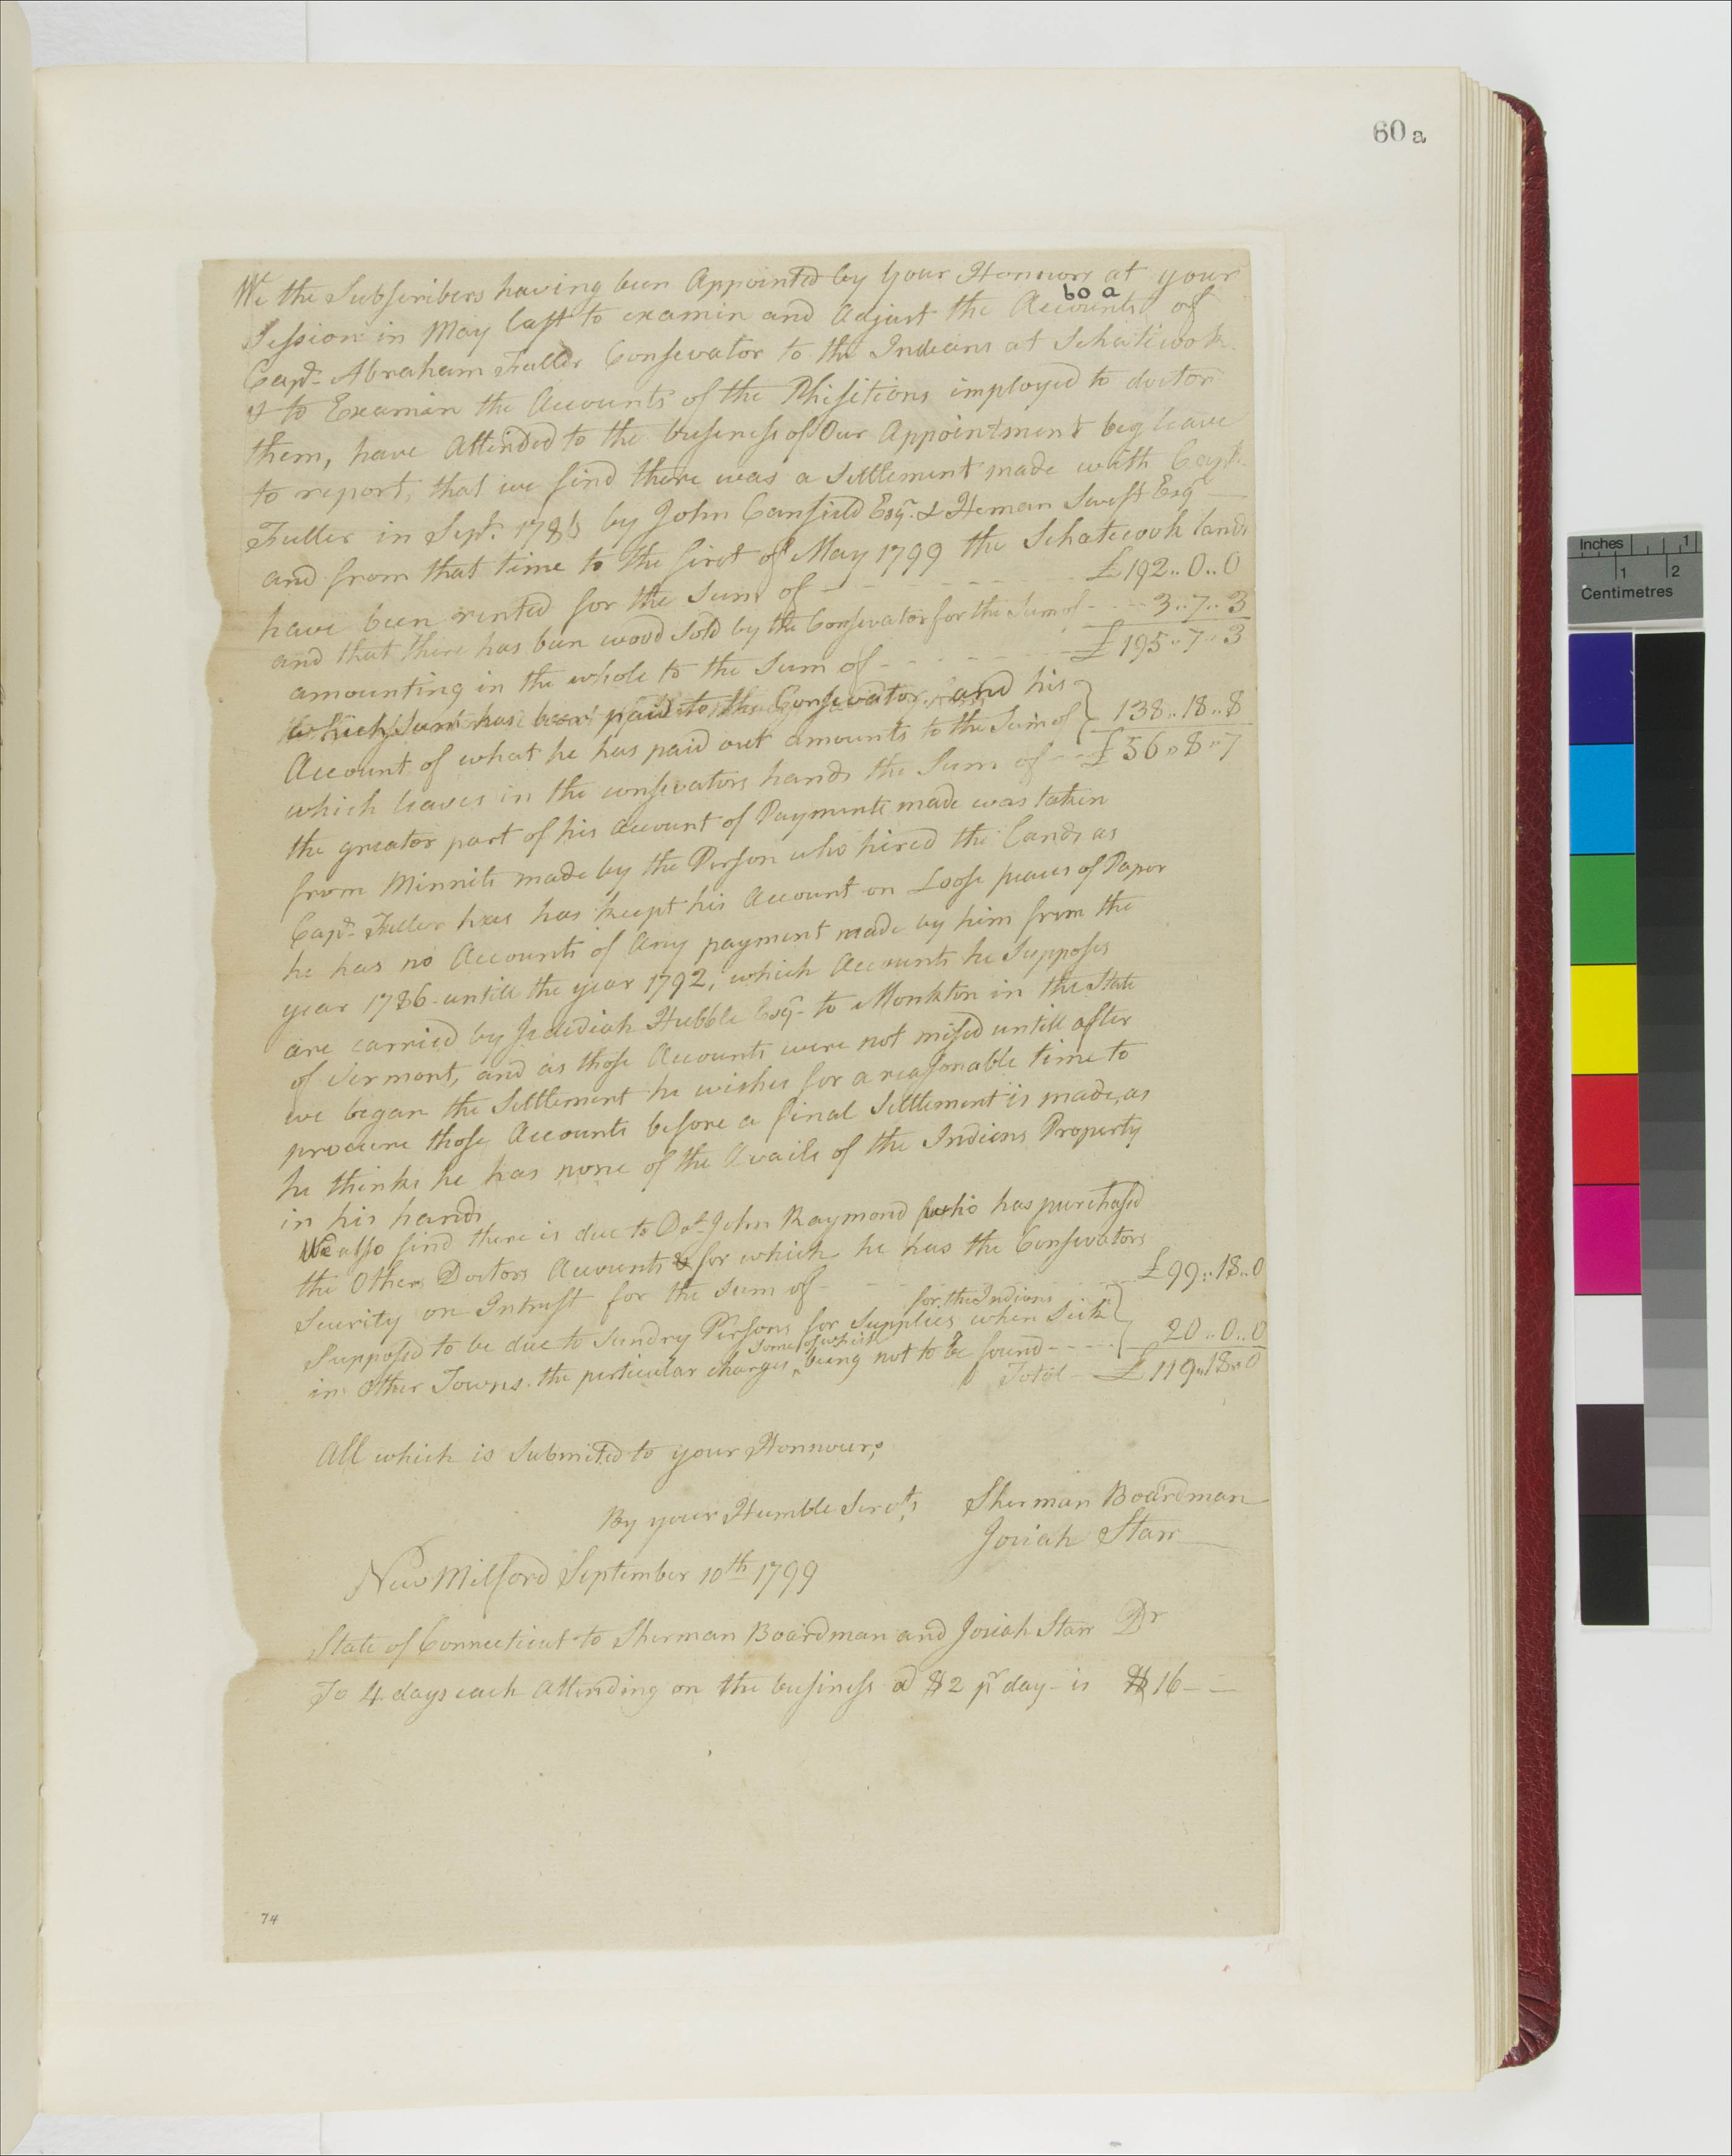 60 a
We the Subscribers having been Appointed by your Honnours at your
60 a
Session in May last to examin and Adjust the Accounts of
Capt. Abraham Fuller Consevator to the Indians at Schaticook
& to Examin the Accounts of the Phisitions imployed to doctor
them, have Attended to the business of Our Appointment beg leave
to report, that we find there was a Settlement made with Capt.
Fuller in Sept. by John Canfield Esqr. & Heman Swift Esqr
and from that time to the first of May 1799 the Schatecook lands
have been rented for the Sum of - - - - - £192..0..0
and that there has been wood Sold by the Consevator for the Sum of - - - 3..7..3
amounting in the whole to the Sum of - - - - - £195..7..3
which Sum has been paid to the Consevator, and his
Account of what he has paid out amounts to the Sum of } 138..18..8
which leaves in the consevators hands the Sum of - - £56..8..7
the greator part of his account of Payments made was taken
from Minnits made by the Person who hired the Lands as
Capt. Fuller has has keept his Account on Loose peaces of Paper
he has no Accounts of Any payment made by him from the
year 1786 untill the year 1792, which Accounts he Supposes
are carried by Jedediah Hubble Esqr. to Monkton in the State
of Vermont, and as those Accounts were not mised untill after
we began the Settlement he wishes for a reasonable time to
procure those Accounts before a final Settlement is made, as
he thinks he has none of the Avails of the Indians Property
in his hands
We also find there is due to Dot. John Raymond who has purchased
the Other Doctors Accounts & for which he has the Consevators
Security on Intrust for the Sum of - - - - £99..18..0
for the Indians
Supposed to be due to Sundry Persons for Supplies when Sick
some of which
in Other Towns the perticular charges being not to be found - - - - } 20..0..0
Total - £119..18..0
All which is Submited to your Honnours,
By your Humble Servts Sherman Boardman
Josiah Starr
New Milford September 10th 1799
State of Connecticut to Sherman Boardman and Josiah Starr Dr
To 4 days each Attending on the business @ $2 pr day - is $16 - -
74
Inches 1
1 2
Centimetres